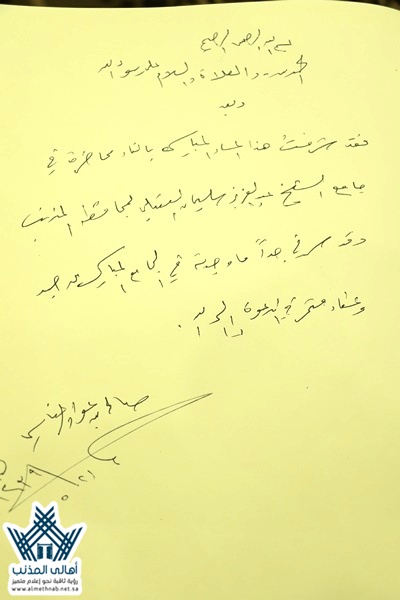 بسم الله الرحمن الرحيم
الحمد لله والصلاة والسلام على رسول الله
وبعد
فقد شرفت هذا المساء المبارك بإلقاء محاضرة في
جامع الشيخ عبدالعزيز سليمان العقيلي بمحافظة المذنب
وقد سرني جداً ما وجدته في الجامع المبارك من جهد
وعطاء متميز في الدعوة إلى الله.
صالح بن عواد المغامسي
أهالي المذنب
رؤية ثاقبة نحو إعلام متميز
www.almethnab.net.sa